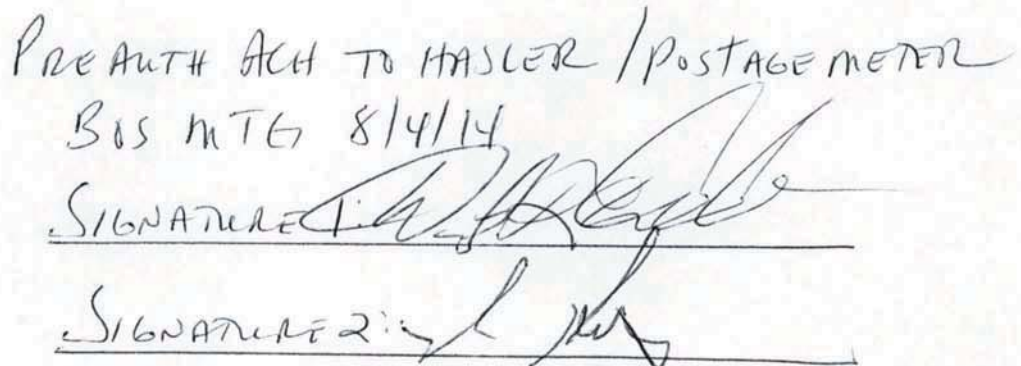 PREAUTH ACH TO HASLER / POSTAGE METER
BOS MTG 8/4/14
SIGNATURE 1:
SIGNATURE 2: